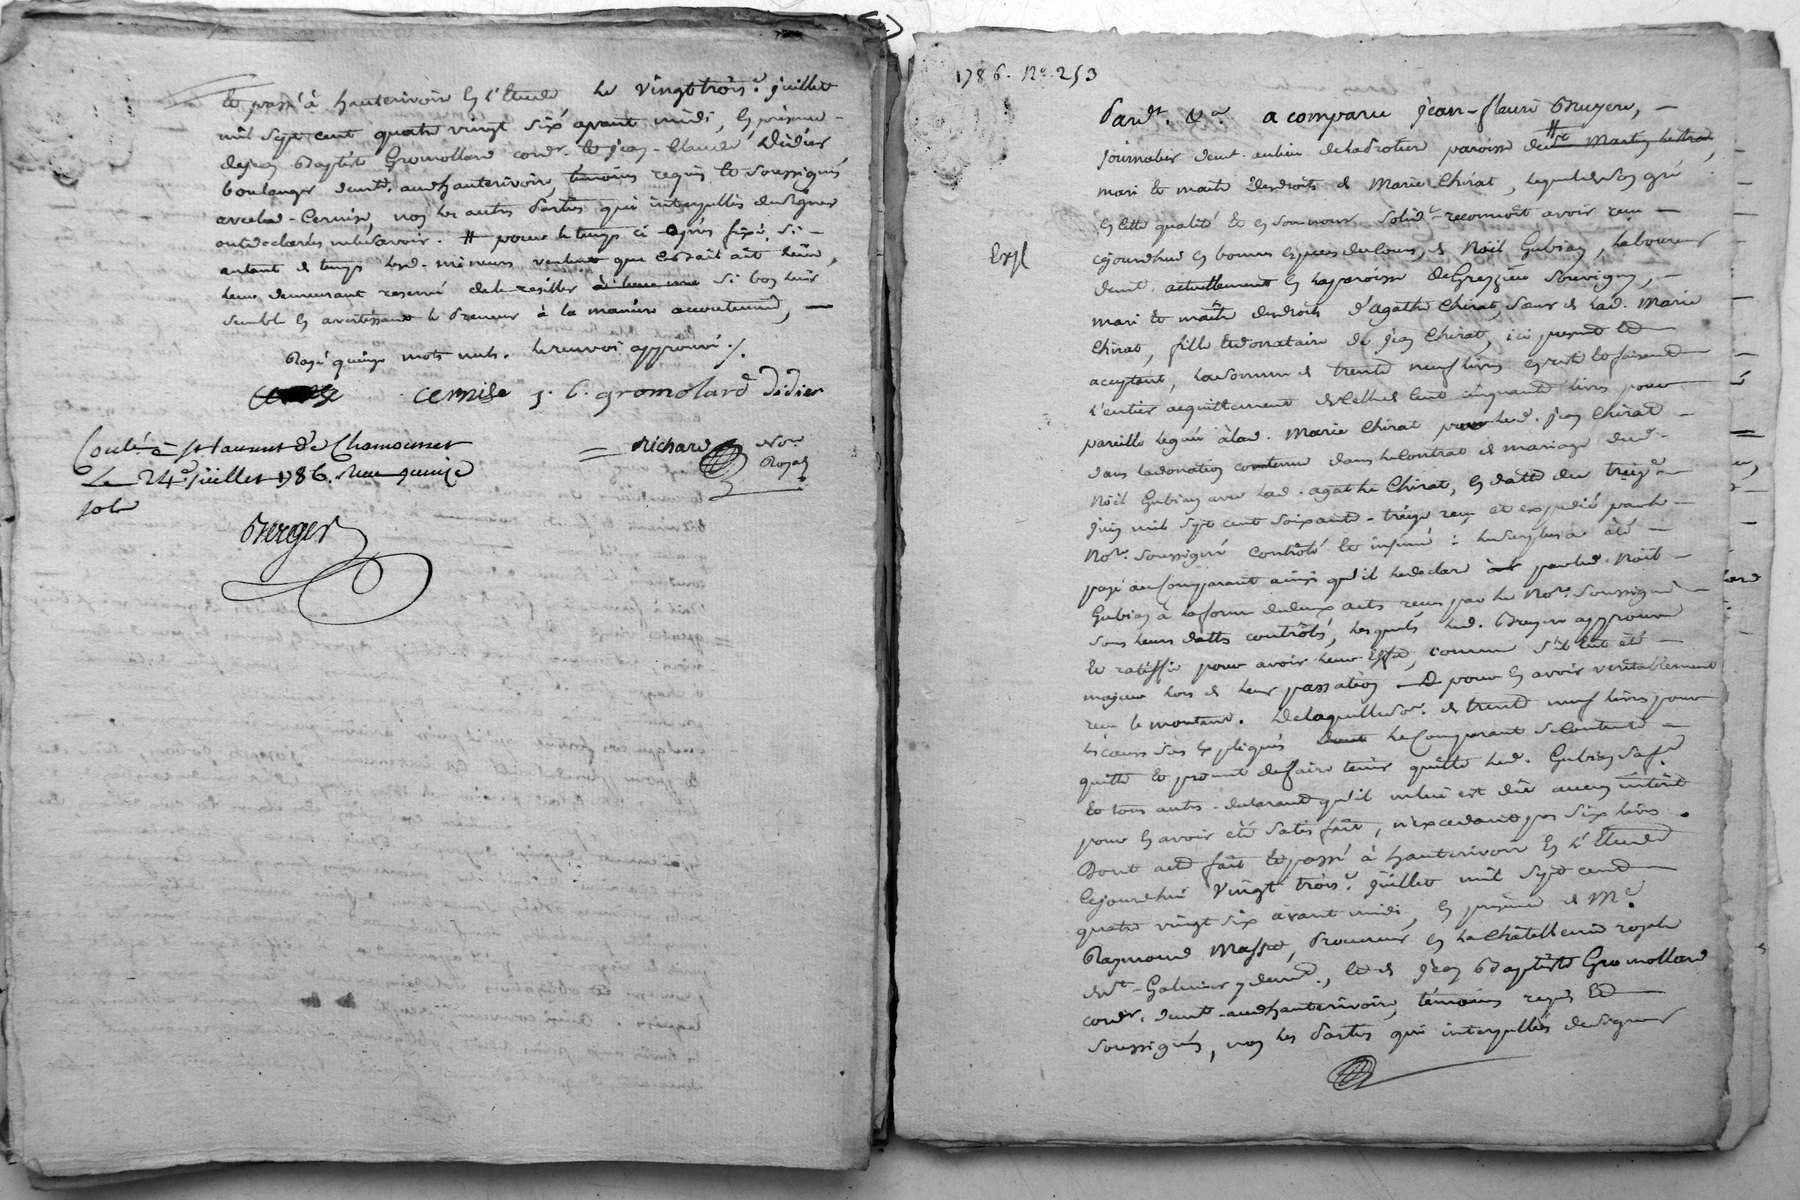 et passé à hauterivoir En l'Etude le vingt trois.e juillet
mil sept cent quatre vingt six avant midi, En présence
de jean Baptiste Gromollard cord.r et jean-Claude Didier
boulanger demt. aud hauterivoire, témoins requis et soussignés
avec led. Cernise, non les autres Parties qui interpellées de signer
ont declarés ne le savoir. # pour le temps ci-après fixé, si
autant de temps lesd. mineurs veulent que led bail ait lieu,
leur demeurant reservé de le resilier à leur si bon leur
semble En avertissant le Preneur à la manière accoutumée,
Rayé quinze mots nuls. le renvoi approuvé ./.
Cernise j. b. gromolard didier
= Richard No.re
Royal
Conlé à st Laurent De Chamousset
Le 24e juillet 1786. Reçu quinze
sols
Berger
1786. No. 253
Pard.t &a. a comparu jean-fleuri Bruyere,
journalier demt. au lieu de la Protiere paroisse de st Martin lestra,
mari et maitre des droits de Marie Chirat, lequel de son gré
En cette qualité et En son nom solid.t reconnoit avoir reçu
Expé
cejourdhui En bonnes Especes de cours, de Noël Gubian, laboureur
demt. actuellement En la paroisse de Grezzieu Souvigny,
mari et maitre des droits d'agathe Chirat, sœur de lad. Marie
Chirat, fille et donataire de jean Chirat, ici present et
acceptant, la somme de trente neuf livres restante et faisant
l'entier acquittement de celle de Cent cinquante livres pour
pareille leguée à lad. Marie Chirat par led. jean Chirat
dans la donation contenue dans le Contrat de mariage dud.
Noël Gubian avec lad. agathe Chirat, En datte du treize
juin mil sept cent soixante-treize reçu et expedié par le
No.re soussigné Contrôlé et insinué : le surplus a été
payé au Comparant ainsi qu'il le declare par led. Noël
Gubian à la forme de deux actes reçus par le No.re Soussigné
sous leurs dattes contrôlés, lesquels led. Bruyere approuve
et ratiffie pour avoir leur Effet, comme s'il eut été
majeur lors de leur passation et pour En avoir veritablement
reçu le montant. De laquelle so.e de trente neuf livres pour
les causes sus Expliquées le Comparant se Contente
quitte et promet de faire tenir quitte led. Gubian
et tous autres. declarant qu'il ne lui est dû aucun intérêt
pour En avoir été satisfait, n'excedant pas six livres.
Dont acte fait et passé à hauterivoir En l'Etude
Cejourdhui vingt trois.e juillet mil sept cent
quatre vingt six avant midi, En présence de M.e
Raymond Masson, Procureur En la Châtellenie royale
de st-Galmier y demt., et de jean Baptiste Gromollard
cord.r demt. aud hauterivoire, témoins requis et
soussignés, non les Parties qui interpellées de signer